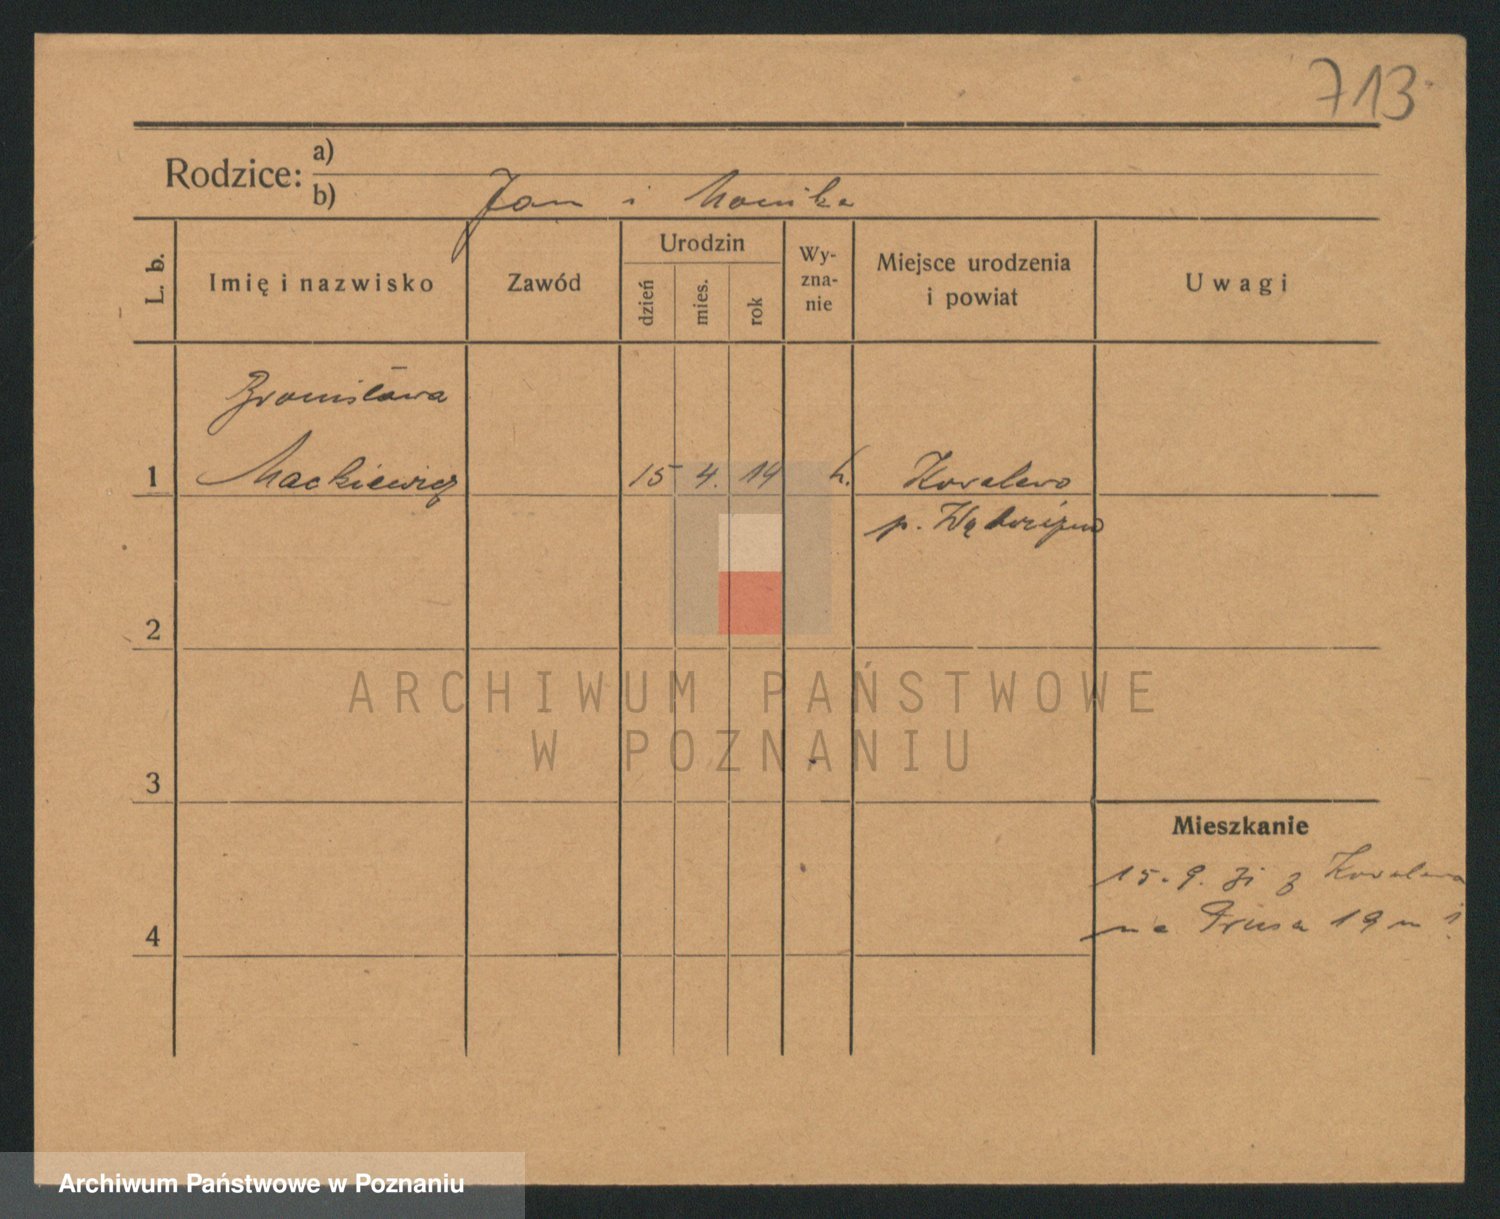 713
Rodzice: a)
b) Jan i Monika
L. b. Imię i nazwisko Zawód Urodzin dzień mies. rok Wy-zna-nie Miejsce urodzenia i powiat Uwagi
Bronisława
1 Mackiewicz 15 4. 14 k. Kowalewo
p. Wąbrzeźno
2
ARCHIWUM PAŃSTWOWE
W POZNANIU
3
Mieszkanie
15. 9. z Kowalewa
4 na Prusa 19 m
Archiwum Państwowe w Poznaniu